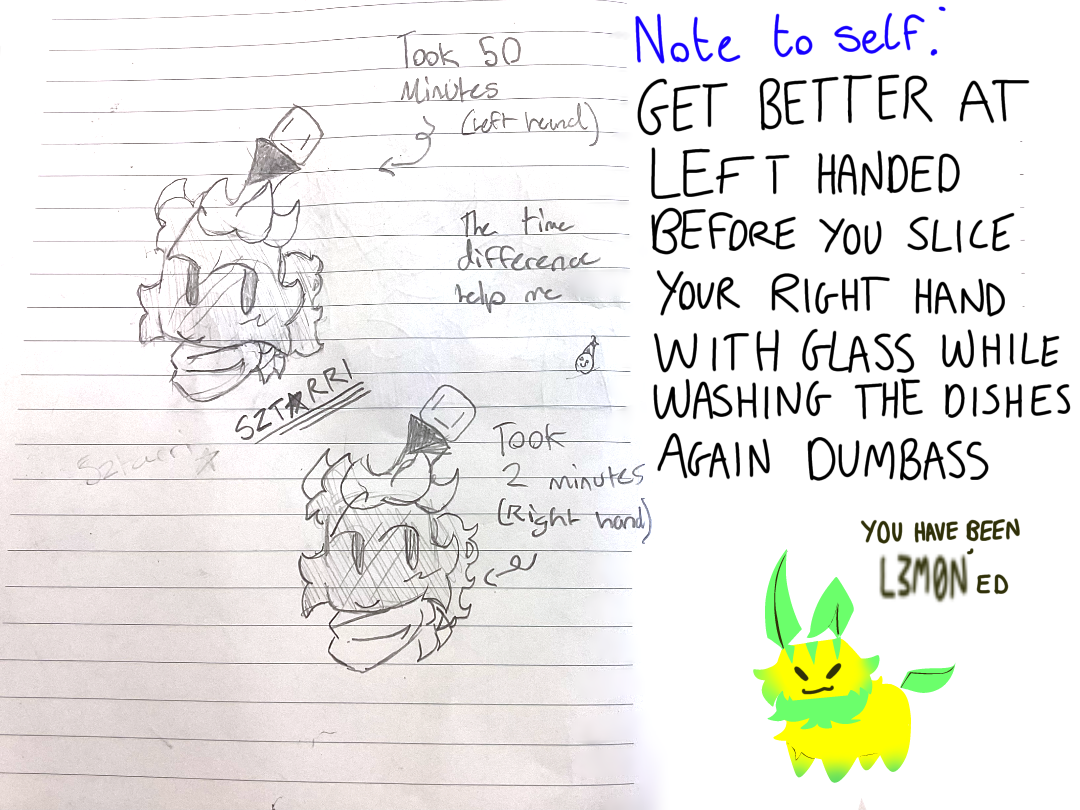 Took 50
Minutes
(Left hand)
The time
difference
help me
SZT★RRI
Took
2 minutes
(Right hand)
Note to self:
GET BETTER AT
LEFT HANDED
BEFORE YOU SLICE
YOUR RIGHT HAND
WITH GLASS WHILE
WASHING THE DISHES
AGAIN DUMBASS
YOU HAVE BEEN
L3M0N ED